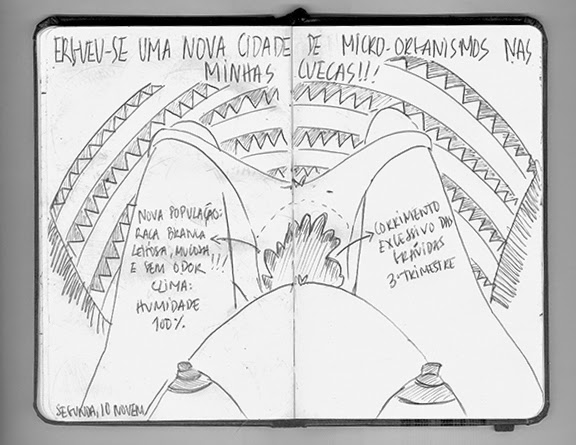 ERGUEU-SE UMA NOVA CIDADE DE MICRO-ORGANISMOS NAS
MINHAS CUECAS!!!
NOVA POPULAÇÃO:
RAÇA BRANCA
LEITOSA, MUCOSA
E SEM ODOR!!!
CLIMA:
HUMIDADE
100%
CORRIMENTO
EXCESSIVO DAS
GRÁVIDAS
3º TRIMESTRE
SEGUNDA, 10 NOVEM